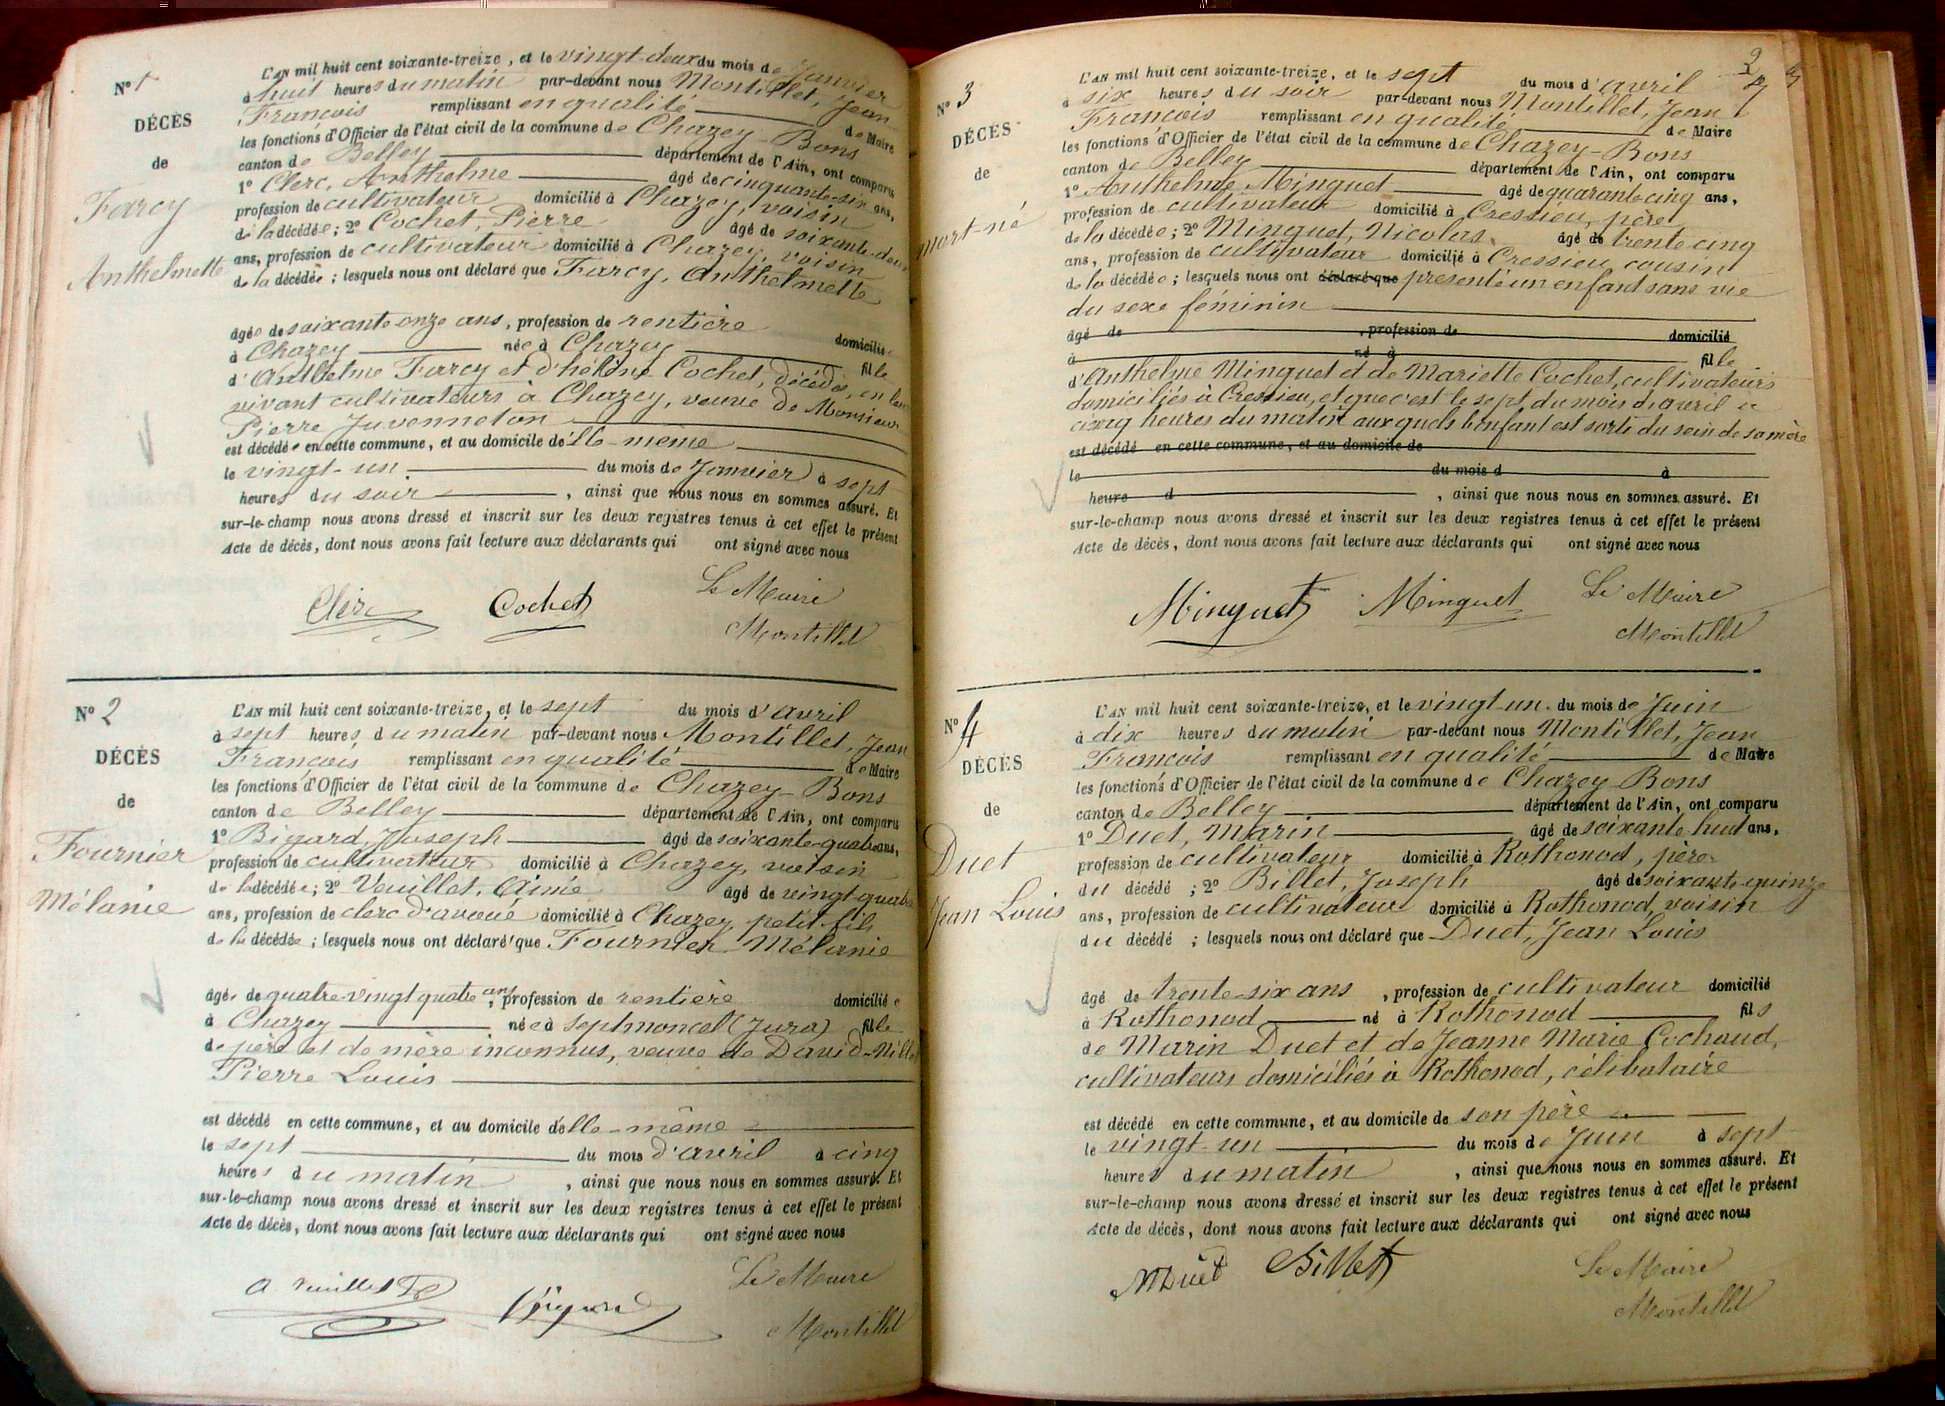 N° 1
DÉCÈS
de
Farcy
Anthelmette
L'AN mil huit cent soixante-treize, et le vingt-deux du mois de Janvier
à huit heures du matin par-devant nous Montillet, Jean
François remplissant en qualité de Maire
les fonctions d'Officier de l'état civil de la commune de Chazey-Bons
canton de Belley département de l'Ain, ont comparu
1° Clerc, Anthelme âgé de cinquante-six ans,
profession de cultivateur domicilié à Chazey, voisin
de la décédée; 2° Cochet, Pierre âgé de soixante-deux
ans, profession de cultivateur domicilié à Chazey, voisin
de la décédée; lesquels nous ont déclaré que Farcy, Anthelmette
âgée de soixante onze ans, profession de rentière domiciliée
à Chazey née à Chazey fille
d'Anthelme Farcy et d'hélène Cochet, décédés, en leur
vivant cultivateurs à Chazey, veuve de Monsieur
Pierre Juvenneton
est décédée en cette commune, et au domicile d'elle-même
le vingt-un du mois de Janvier à sept
heures du soir, ainsi que nous nous en sommes assuré. Et
sur-le-champ nous avons dressé et inscrit sur les deux registres tenus à cet effet le présent
Acte de décès, dont nous avons fait lecture aux déclarants qui ont signé avec nous
Clerc Cochet Le Maire
Montillet
N° 2
DÉCÈS
de
Fournier
Mélanie
L'AN mil huit cent soixante-treize, et le sept du mois d'avril
à sept heures du matin par-devant nous Montillet, Jean
François remplissant en qualité de Maire
les fonctions d'Officier de l'état civil de la commune de Chazey-Bons
canton de Belley département de l'Ain, ont comparu
1° Bigard, Joseph âgé de soixante-quatre ans,
profession de cultivateur domicilié à Chazey, voisin
de la décédée; 2° Veuillet, Aimé âgé de vingt-quatre
ans, profession de clerc d'avoué domicilié à Chazey, petit-fils
de la décédée; lesquels nous ont déclaré que Fournier Mélanie
âgée de quatre-vingt quatre ans, profession de rentière domiciliée
à Chazey née à Septmoncel (Jura) fille
de père et de mère inconnus, veuve de David-Nillet
Pierre Louis
est décédé en cette commune, et au domicile d'elle-même
le sept du mois d'avril à cinq
heures du matin, ainsi que nous nous en sommes assuré. Et
sur-le-champ nous avons dressé et inscrit sur les deux registres tenus à cet effet le présent
Acte de décès, dont nous avons fait lecture aux déclarants qui ont signé avec nous
A Veuillet Bigard Le Maire
Montillet
2
N° 3
DÉCÈS
de
mort-né
L'AN mil huit cent soixante-treize, et le sept du mois d'avril
à six heures du soir par-devant nous Montillet, Jean
François remplissant en qualité de Maire
les fonctions d'Officier de l'état civil de la commune de Chazey-Bons
canton de Belley département de l'Ain, ont comparu
1° Anthelme Minguet âgé de quarante cinq ans,
profession de cultivateur domicilié à Cressieu, père
de la décédée; 2° Minguet, Nicolas âgé de trente cinq
ans, profession de cultivateur domicilié à Cressieu, cousin
de la décédée; lesquels nous ont déclaré que présenté un enfant sans vie
du sexe féminin
âgé de, profession de domicilié
à né à fille
d'Anthelme Minguet et de Mariette Cochet, cultivateurs
domiciliés à Cressieu, et que c'est le sept du mois d'avril à
cinq heures du matin aux quels l'enfant est sorti du sein de sa mère
est décédé en cette commune, et au domicile de
le du mois d à
heure d, ainsi que nous nous en sommes assuré. Et
sur-le-champ nous avons dressé et inscrit sur les deux registres tenus à cet effet le présent
Acte de décès, dont nous avons fait lecture aux déclarants qui ont signé avec nous
Minguet Minguet Le Maire
Montillet
N° 4
DÉCÈS
de
Duet
Jean Louis
L'AN mil huit cent soixante-treize, et le vingt-un du mois de Juin
à dix heures du matin par-devant nous Montillet, Jean
François remplissant en qualité de Maire
les fonctions d'Officier de l'état civil de la commune de Chazey-Bons
canton de Belley département de l'Ain, ont comparu
1° Duet, Marin âgé de soixante huit ans,
profession de cultivateur domicilié à Rothonod, père
du décédé; 2° Billet, Joseph âgé de soixante-quinze
ans, profession de cultivateur domicilié à Rothonod, voisin
du décédé; lesquels nous ont déclaré que Duet, Jean Louis
âgé de trente-six ans, profession de cultivateur domicilié
à Rothonod né à Rothonod fils
de Marin Duet et de Jeanne Marie Cochaud,
cultivateurs domiciliés à Rothonod, célibataire
est décédé en cette commune, et au domicile de son père
le vingt-un du mois de Juin à sept
heures du matin, ainsi que nous nous en sommes assuré. Et
sur-le-champ nous avons dressé et inscrit sur les deux registres tenus à cet effet le présent
Acte de décès, dont nous avons fait lecture aux déclarants qui ont signé avec nous
M Duet Billet Le Maire
Montillet